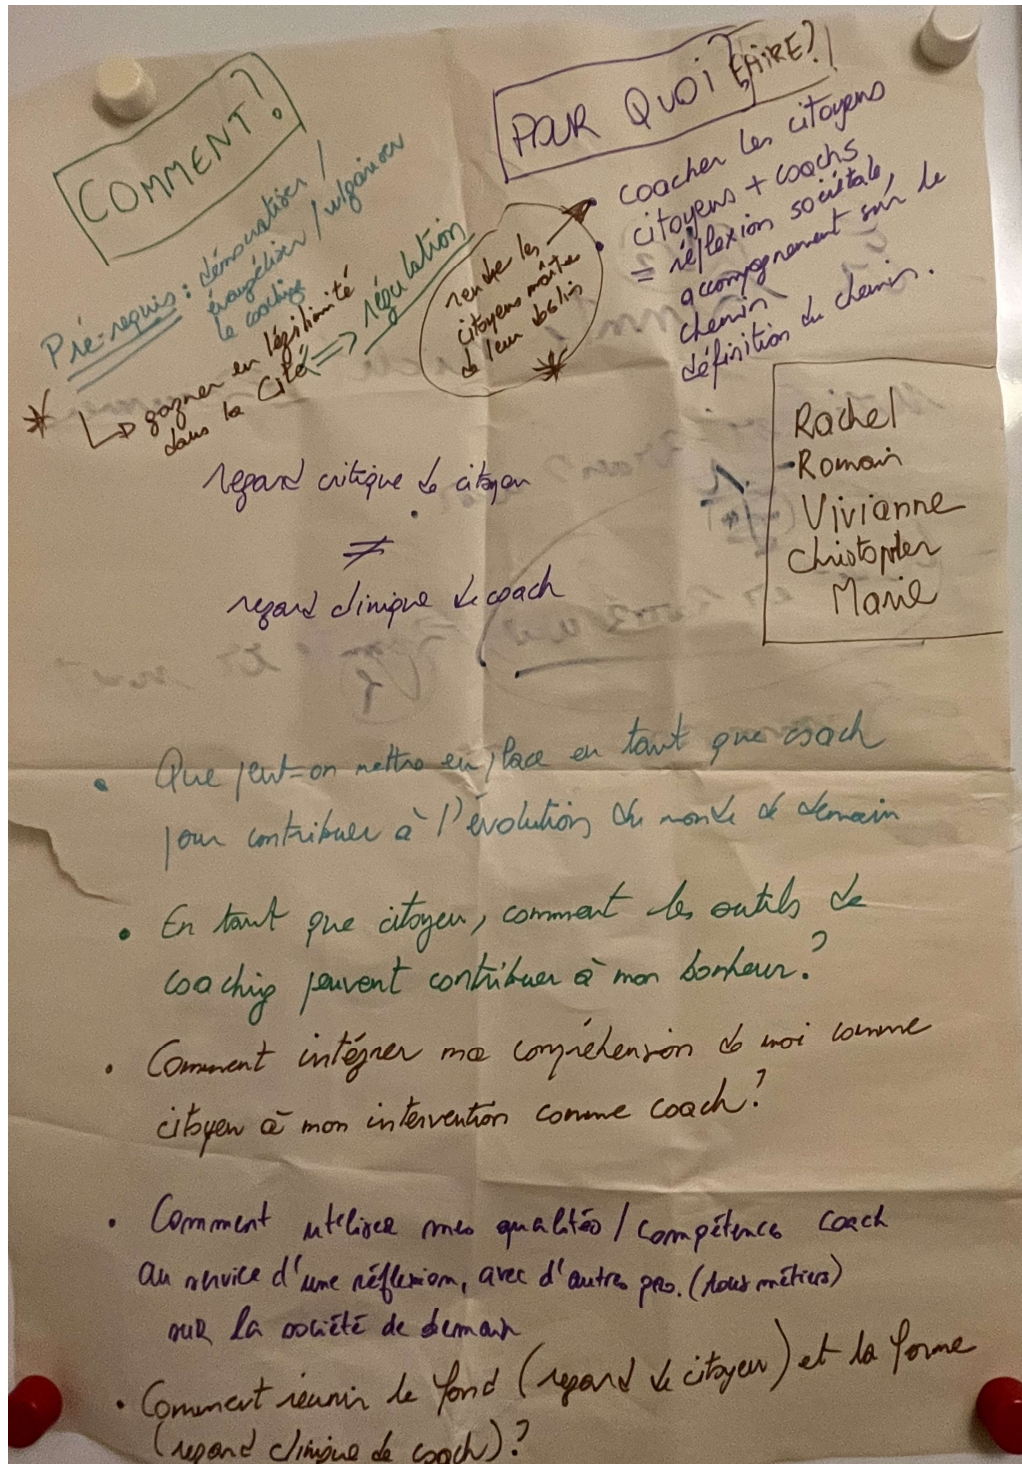 COMMENT?
Pré-requis : démocratiser /
évangéliser / vulgariser
le coaching
* ↳ gagner en légitimité
dans la cité ⇒ régulation
POUR QUOI FAIRE ?!
• coacher les citoyens
citoyens + coachs
= réflexion sociétale,
accompagnement sur le
chemin
définition du chemin.
rendre les
citoyens maître
de leur destin
*
Rachel
- Romain
Vivianne
Christopher
Marie
regard critique de citoyen
≠
regard clinique de coach
• Que peut-on mettre en place en tant que coach
pour contribuer à l'évolution du monde de demain
• En tant que citoyen, comment les outils de
coaching peuvent contribuer à mon bonheur ?
• Comment intégrer ma compréhension de moi comme
citoyen à mon intervention comme coach ?
• Comment utiliser mes qualités / compétences coach
au service d'une réflexion, avec d'autres pro. (tous métiers)
sur la société de demain
• Comment réunir le fond (regard de citoyen) et la forme
(regard clinique de coach) ?